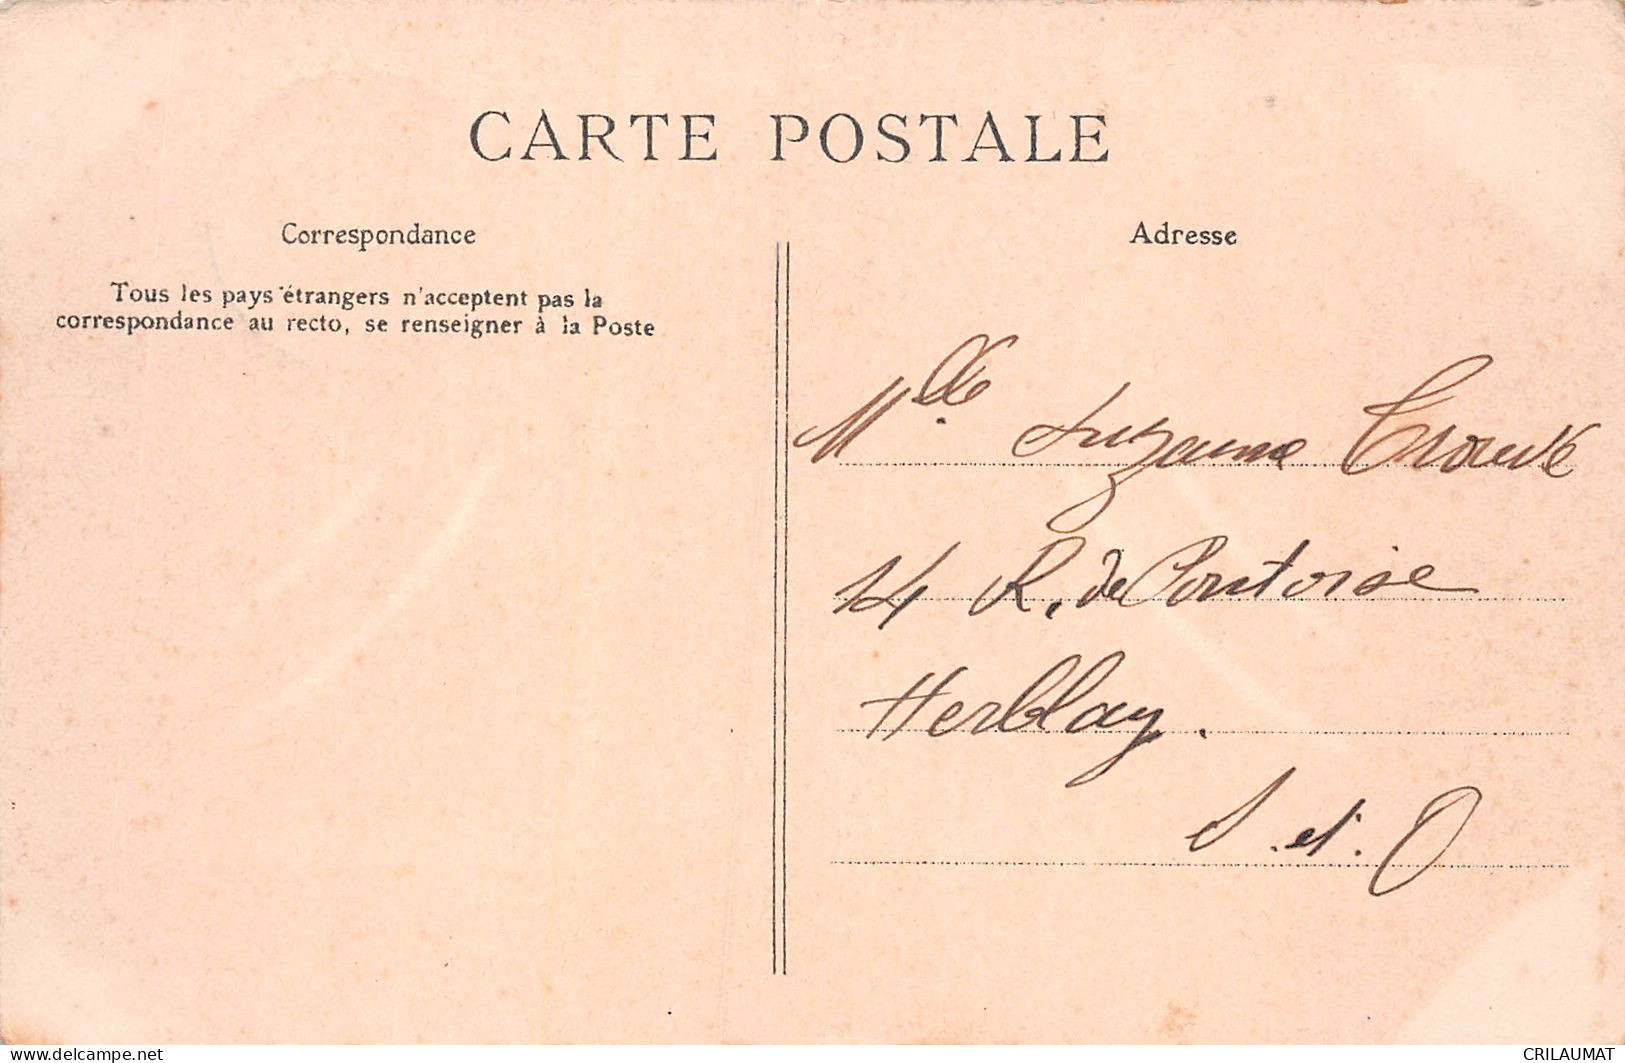 CARTE POSTALE
Correspondance
Tous les pays étrangers n'acceptent pas la
correspondance au recto, se renseigner à la Poste
Adresse
Mlle Suzanne
14 R. de Pontoise
Herblay.
S. et. O
www.delcampe.net
CRILAUMAT